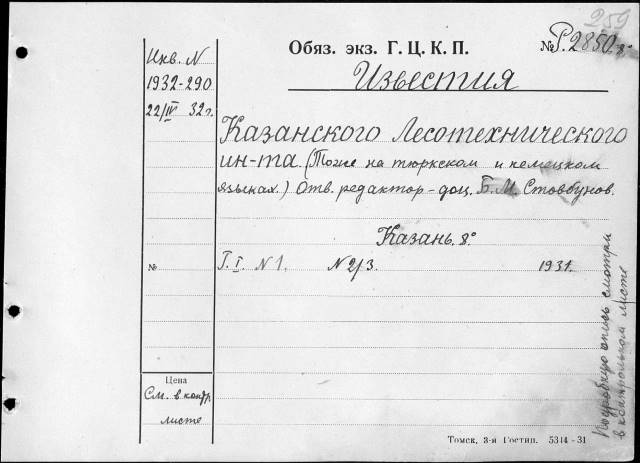 259
Обяз. экз. Г. Ц. К. П.
№ Р.2850
Инв. N
1932-290
22/IV 32г.
Известия
Казанского Лесотехнического
ин-та. (Тоже на тюркском и немецком
языках.) Отв. редактор - доц. Б. М. Стовбунов.
Казань. 8°
№
Т. I. N 1. N 2/3. 1931.
Цена
См. в контр
листе
Подробную опись смотри
в контрольном листе
Томск, 3-я Гостип. 5314-31